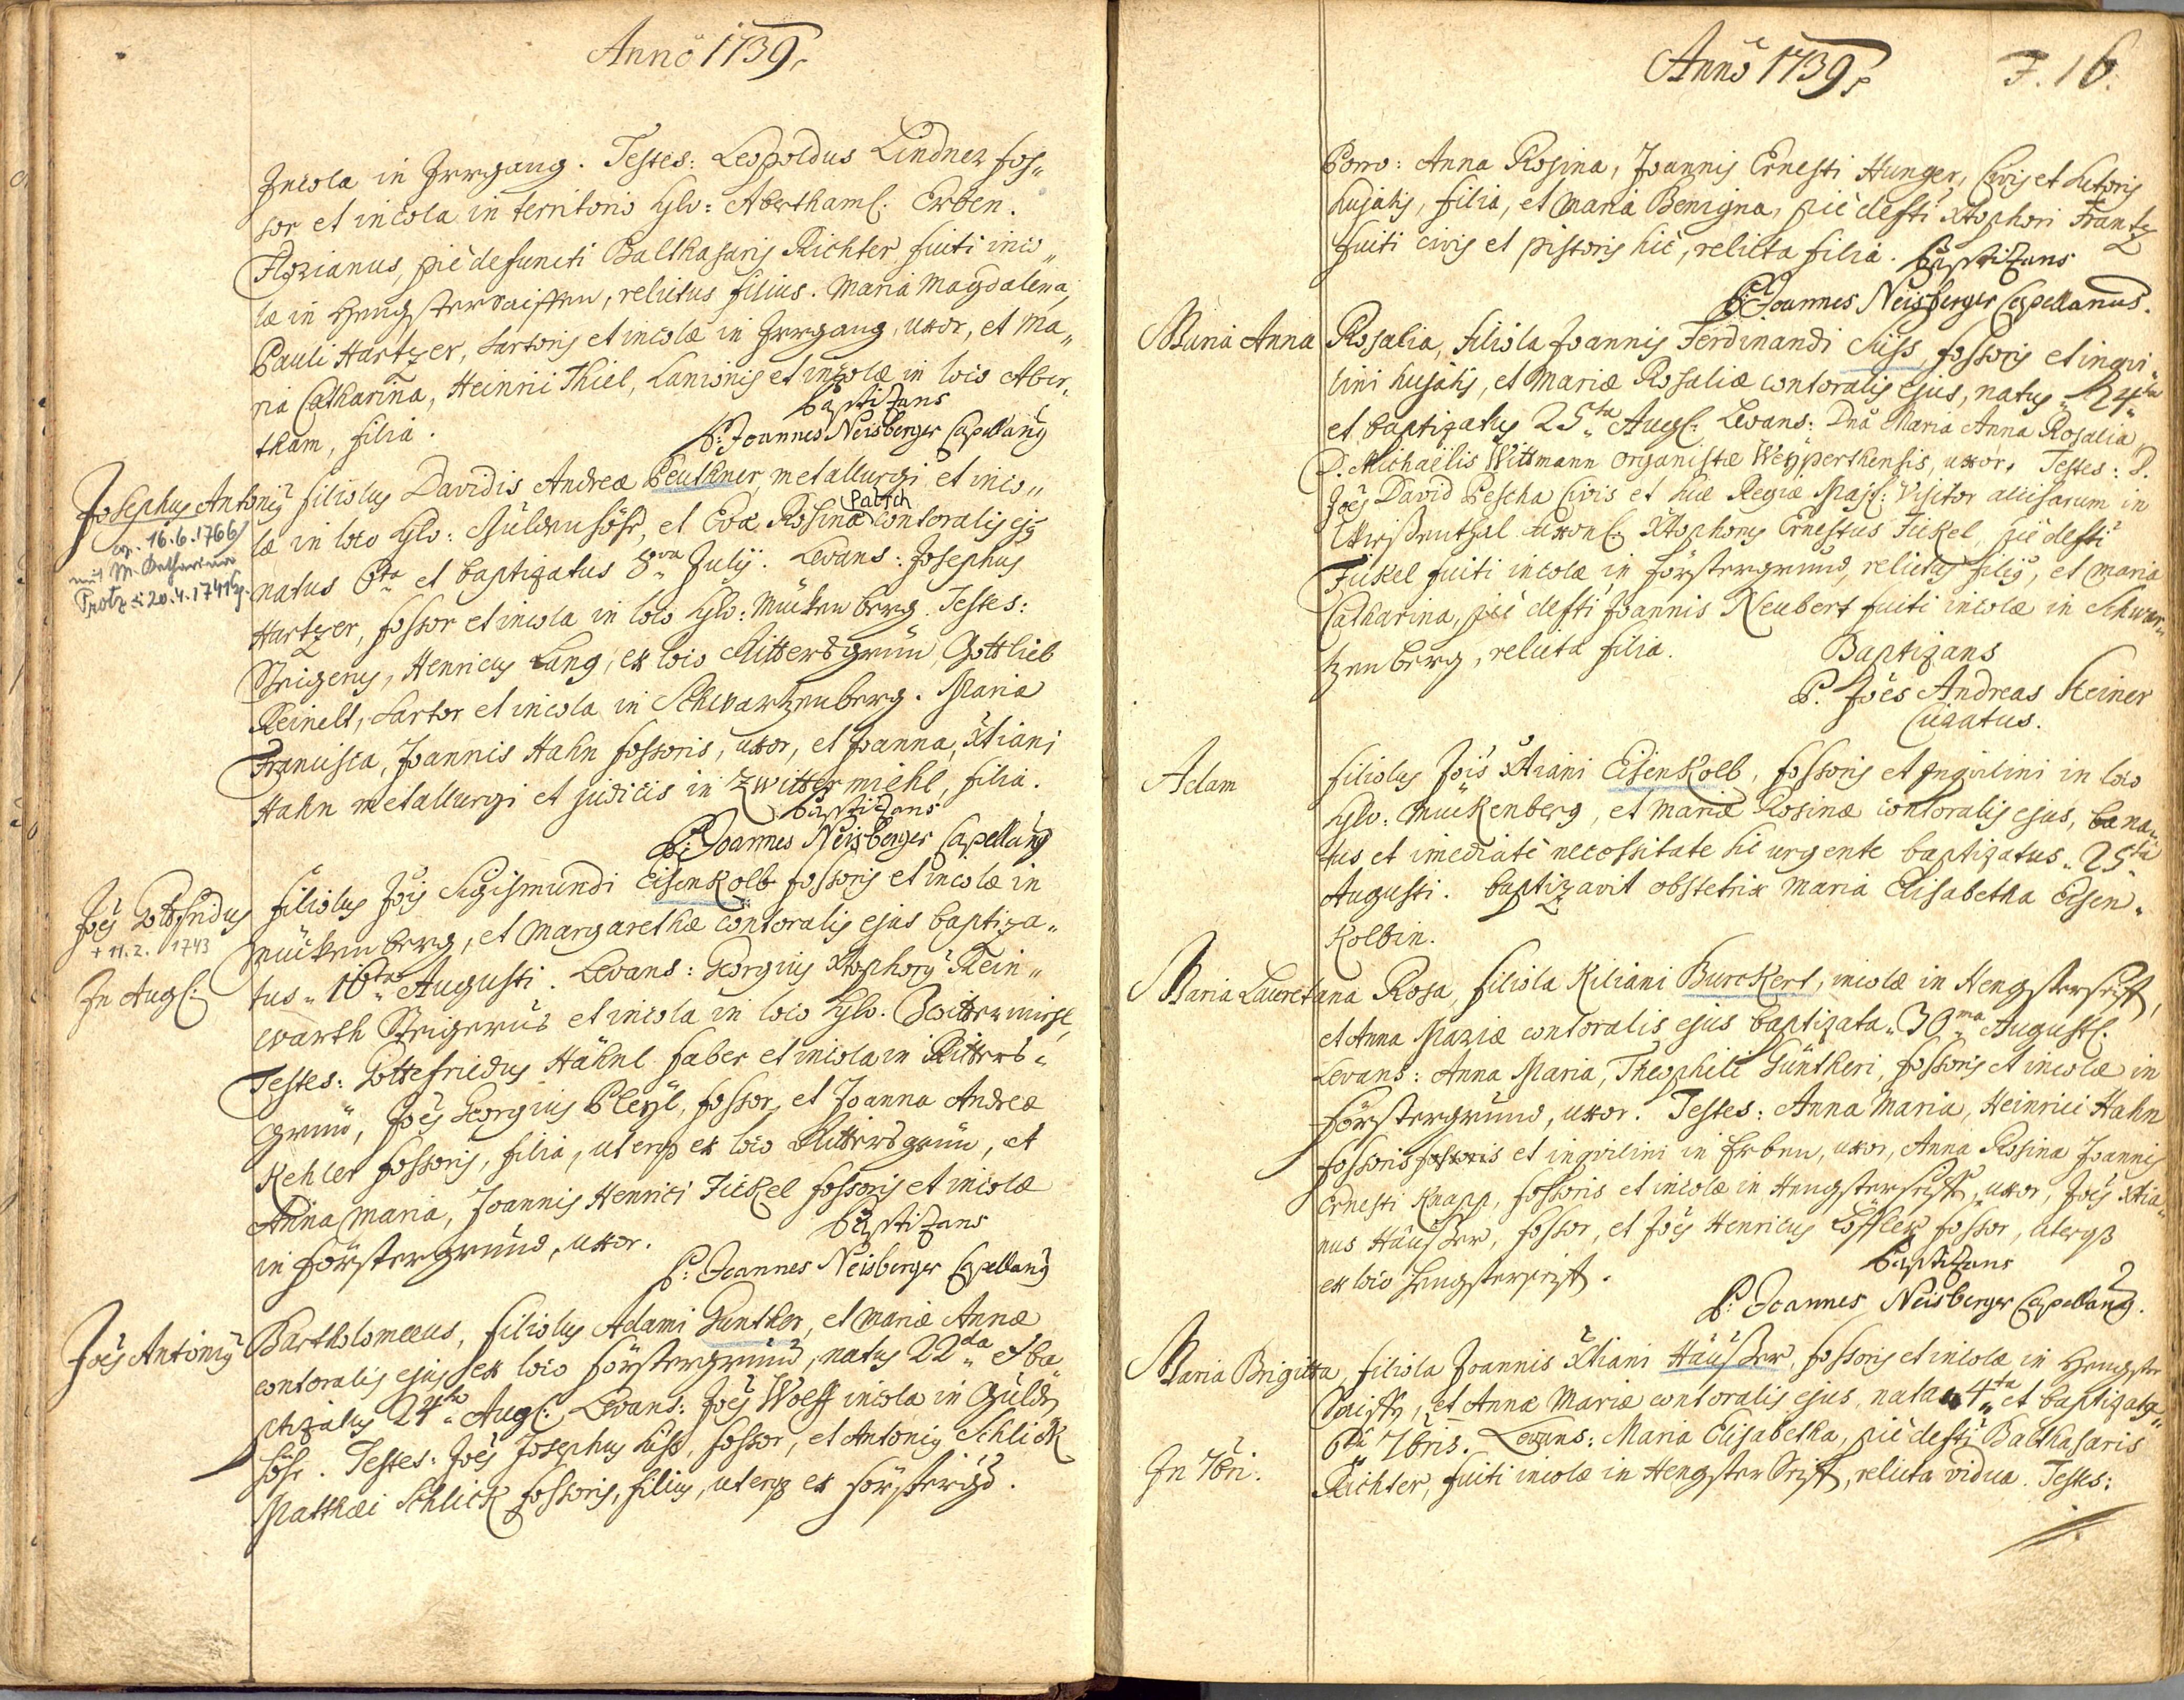 Anno 1739.
Incola in Irrgang. Testes: Leopoldus Lindner fos„
sor et incola in territorio Glo: Abertham[l]: Erben.
Florianus, pie defuncti Balthasaris Richter fuiti inco„
læ in , relictus filius. Maria Magdalena,
Pauli Hartzer, Sartoris et incolæ in Irrgang, uxor, et Ma„
ria Catharina, Heinrici Thiel, Lanionis et incolæ in loco Aber„
tham, filia.
Baptizans
P: Joannes Neisberger Capellanus
Josephus Antonius filiolus Davidis Andreæ Peuthner, metallurgi et inco„
cop. 16.6.1766
mit M. Katharina
Protz
læ in loco Glo: , et Evæ Rosinæ Patsch contoralis ejus
natus 6ta et baptizatus 8va Julij. Levans: Josephus
Hartzer, fossor et incola in loco Glo: Mückenberg. Testes:
Steigerus, Henricus Lang, ex loco Rittersgrün, Gottlieb
Reinelt, Sartor et incola in Schwartzenberg. Maria
Francisca, Joannis Hahn fossoris, uxor, et Joanna, Xtiani
Hahn metallurgi et judicis in Zwittermiehl, filia.
Baptizans
P: Joannes Neisberger Capellanus
Joes Gottfridus filiolus Jois Sigismundi Eisenkolb fossoris et incolæ in
+ 11.2.1743
Mückenberg, et Margarethæ contoralis ejus baptiza„
In Aug[l]:
tus „16ta„ Augusti. Levans: Georgius Xtophorus Rein„
warth Steigerus et incola in loco Glo. Zwittermiehl,
Testes: Gottefriedus Hähnl faber et incola in Ritters„
grün, Joes Georgius Pleÿl, fossor, et Joanna Andreæ
Kehler fossoris, filia, uterq ex loco Rittersgrün, et
Anna Maria, Joannis Henrici Fickel fossoris et incolæ
in Förstergrund, uxor.
Baptizans
P: Joannes Neisberger Capellanus
Joes Antonius Bartholomeus, filiolus Adami Günther, et Mariæ Annæ
contoralis ejus ex loco Förstergrund, natus 22da et ba
ptizatus 24ta Aug[l]: Levans: Joes Wolff incola in Gülden
höhe. Testes: Joes Josephus Süss, fossor, et Antonius Schlick
Matthæi Schlick fossoris, filius, uterq ex .
Anno 1739.
F. 16.
Porro: Anna Rosina, Joannis Ernesti Hunger, Civis et Sutoris
hujatis, filia, et Maria Benigna, pie defti Xtophori Frantz
fuiti civis et pistoris hic, relicta filia. Baptizans
P: Joannes Neisberger Capellanus.
Maria Anna Rosalia, filiola Joannis Ferdinandi Süss, fossoris et inqui„
lini hujatis, et Mariæ Rosaliæ contoralis ejus, natus „24ta
et baptizatus 25ta Aug[l]: Levans: Dna Maria Anna Rosalia,
D. Michaëlis Wittmann organistæ Weÿperthensis, uxor. Testes: D.
Joes David Pescha Civis et Suæ Regiæ Maj[l]: Visitor accisarum in
Xtophorus Ernestus Fickel, pie defti
Fickel fuiti incolæ in Förstergrund, relictus filius, et Maria
Catharina, pie defti Joannis Neubert fuiti incolæ in Schwar„
tzenberg, relicta filia.
Baptizans
P. Joes Andreas Steiner
Curatus.
Adam filiolus Jois Xtiani Eisenkolb, fossoris et Inquilini in loco
Glo: Mückenberg, et Mariæ Rosinæ contoralis ejus, ba na„
tus et imediate necessitate sic urgente baptizatus „25ta
Augusti. baptizavit obstetrix Maria Elisabetha Eisen„
kolbin.
Maria Lauretana Rosa, filiola Kiliani Burckert, incolæ in Hengstereyst,
et Anna Mariæ contoralis ejus baptizata „30ma August[l].
Levans: Anna Maria, Theophili Güntheri, fossoris et incolæ in
Förstergrund, uxor. Testes: Anna Maria, Heinrici Hahn
fossoris fossoris et inquilini in Erben, uxor, Anna Rosina Joannis
Ernesti Knapp, fossoris et incolæ in , uxor, Joes Xtia„
nus Häußer, fossor, et Joes Henricus Löffler fossor, uterq
ex loco .
Baptizans
P: Joannes Neisberger Capellanus.
Maria Brigitta, filiola Joannis Xtiani Häußer, fossoris et incolæ in Hengster
, et Annæ Mariæ contoralis ejus, nata 4ta et baptizata
In 7bri.
6ta 7bris. Levans: Maria Elisabetha, pie defti Balthasaris
Richter, fuiti incolæ in , relicta vidua. Testes: